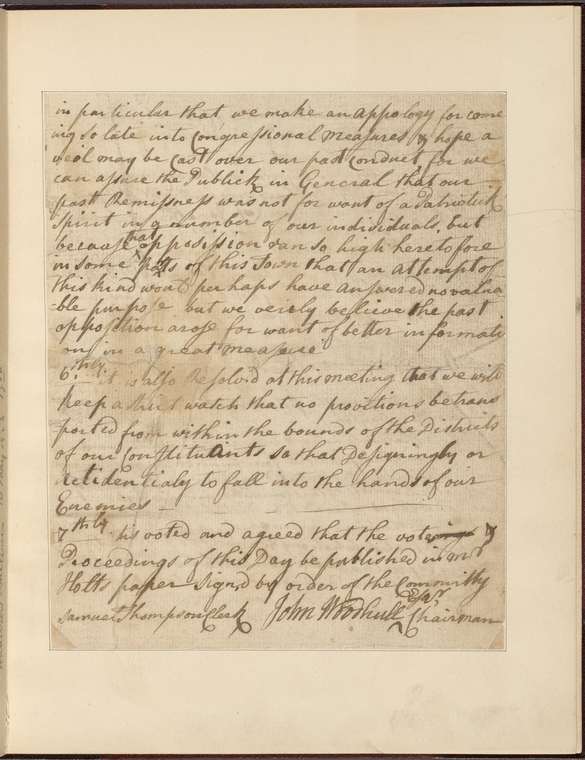 in particular that we make an appology for come
ing so late into Congressional measures & hope a
veiol may be Cast over our past conduct, for we
can assure the Publick in General that our
past Remissness was not for want of a Patriotick
Spirit in a number of our individuals, but
because that opposission ran so high heretofore
in some parts of this Town that an attempt of
this kind wont perhaps have answered no valua
-ble purpose but we veirly believe the past
opposition arose for want of better informati
on in a great measure
6.thly it is also Resolv'd at this meeting that we will
keep a strict watch that no provitions be trans
ported from within the bounds of the Districts
of our Constituants so that Designingly or
accidentialy to fall into the hands of our
Enemies
7thly tis voted and agreed that the voteings &
Proceedings of this Day be published in mr
Holts paper Signed by order of the Committy
Samuel Thompson Clerk John Woodhull Esqr Chairman